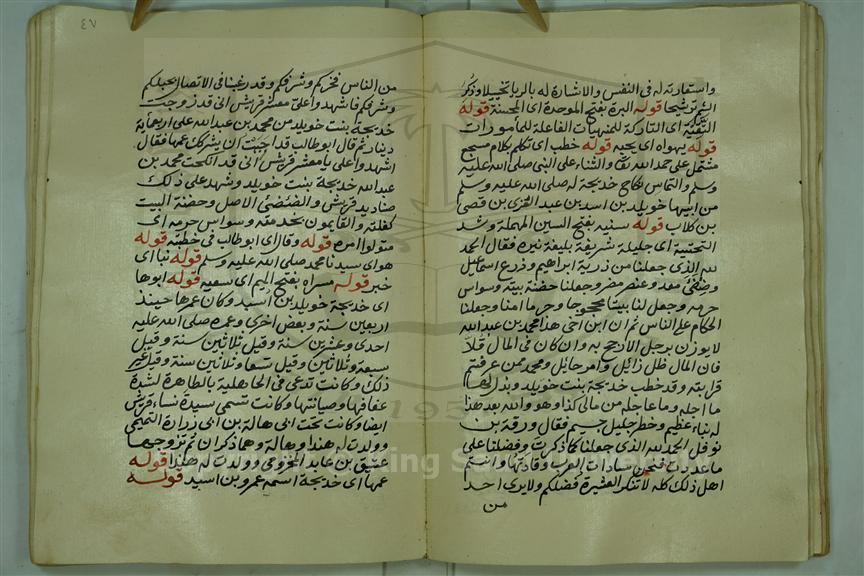 واستعارته له في النفس والاشارة له بالريا تخييلا وذكر
الشم ترشيحا قوله البرة بفتح الموحدة اى المحسنة قوله
التقية اى التاركة للمنهيات الفاعلة للمأمورات
قوله يهواه اى يحبه قوله خطب اى تكلم بكلام مسجع
مشتمل على حمد الله تعالى والثناء على النبي صلى الله عليه
وسلم والتماس نكاح خديجة له صلى الله عليه وسلم
من ابيها خويلد بن اسد بن عبد العزى بن قصى
بن كلاب قوله سنيه بفتح السين المهملة وشد
التحتية اى جليلة شريفة بليغة نيرة فقال الحمد
لله الذى جعلنا من ذرية ابراهيم وزرع اسماعيل
وضئضئ معد وعنصر مضر وجعلنا حضنة بيته وسواس
حرمه وجعل لنا بيتا محجوجا وحرما امنا وجعلنا
الحكام على الناس ثم ان ابن اخى هذا محمد بن عبد الله
لا يوزن برجل الا رجح به وان كان في المال قلا
فان المال ظل زائل وامر حائل ومحمد ممن عرفتم
قرابته وقد خطب خديجة بنت خويلد وبذل لها
ما اجله وما عاجله من مالى كذا وهو والله بعد هذا
له نباء عظيم وخطر جليل جسيم فقال ورقة بن
نوفل الحمد لله الذى جعلنا كما ذكرت وفضلنا على
ما عددت فنحن سادات العرب وقادتها وانتم
اهل ذلك كله لا تنكر العشيرة فضلكم ولا يرد احد
من
٤٧
من الناس فخركم وشرفكم وقد رغبنا في الاتصال بحبلكم
وشرفكم فاشهدوا على معشر قريش انى قد زوجت
خديجة بنت خويلد من محمد بن عبد الله على اربعماية
دينار ثم قال ابو طالب قد احببت ان يشركك عمها فقال
اشهدوا على يا معشر قريش انى قد انكحت محمد بن
عبد الله خديجة بنت خويلد وشهد على ذلك
صناديد قريش والضئضئ الاصل وحضنة البيت
كفلته والقايمون بخدمته وسواس حرمه اى
متولوا امره قوله وقال اى ابو طالب في خطبته قوله
هو اى سيدنا محمد صلى الله عليه وسلم قوله نبا اى
خبر قوله مسراه بفتح الميم اى سعيه قوله ابوها
اى خديجة خويلد بن اسيد وكان عمرها حينئذ
اربعين سنة وبعض اخرى وعمره صلى الله عليه
احدى وعشرين سنة وقيل ثلاثين سنة وقيل
سبعة وثلاثين وقيل تسعا وثلاثين سنة وقيل غير
ذلك وكانت تدعى في الجاهلية بالطاهرة لشدة
عفافها وصيانتها وكانت تسمى سيدة نساء قريش
ايضا وكانت تحت ابى هالة بن ابى زرارة التميمى
وولدت له هندا وهالة وهما ذكران ثم تزوجها
عتيق بن عابد المخزومى وولدت له هندا قوله
عمها اى خديجة اسمه عمرو بن اسيد قوله